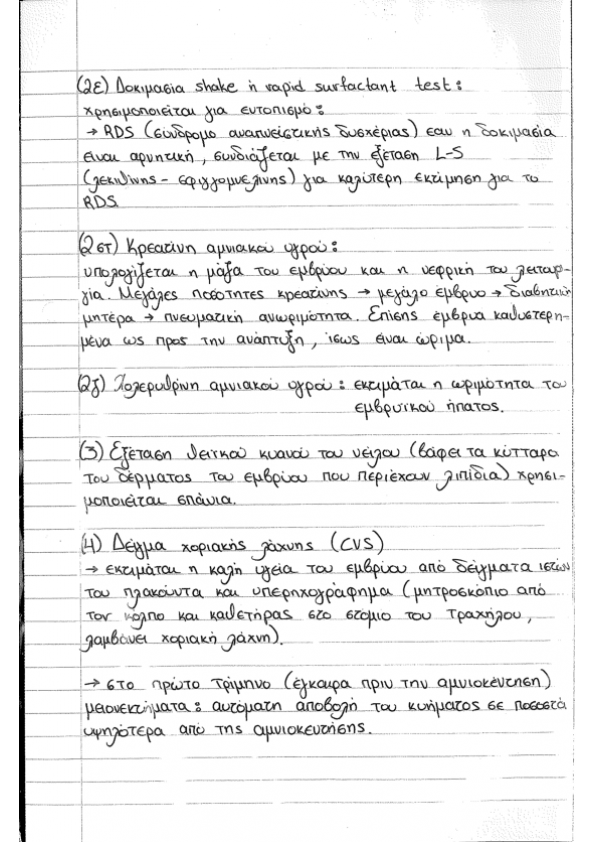 (2ε) Δοκιμασια shake ή rapid surfactant test:
χρησιμοποιείται για εντοπισμό:
→ RDS (σύνδρομο αναπνευστικής δυσχέριας) εαν η δοκιμασία
ειναι αρνητική, συνδιάζεται με την εξέταση L-S
(λεκιθίνης - σφιγγομυελίνης) για καλύτερη εκτίμηση για το
RDS.
(2στ) Κρεατίνη αμνιακού υγρού:
υπολογίζεται η μάζα του εμβρύου και η νεφρική του λειτουρ-
γία. Μεγάλες ποσότητες κρεατίνης → μεγάλο έμβρυο → διαβητική
μητέρα → πνευματική ανωριμότητα. Επίσης έμβρυα καθυστερη-
μένα ως προς την ανάπτυξη, ίσως είναι ώριμα.
(2ζ) Χολερυθρίνη αμνιακού υγρού: εκτιμάται η ωριμότητα του
εμβρυϊκού ήπατος.
(3) Εξέταση θειϊκού κυανού του νείλου (βάφει τα κύτταρα
του δέρματος του εμβρύου που περιέχουν λιπίδια) χρησι-
μοποιείται σπάνια.
(4) Δείγμα χοριακής λάχνης (CVS)
→ εκτιμάται η καλή υγεία του εμβρύου από δείγματα ιστών
του πλακούντα και υπερηχογράφημα (μητροσκόπιο από
τον κόλπο και καθετήρας στο στόμιο του τραχήλου,
λαμβάνει χοριακή λάχνη).
→ στο πρώτο τρίμηνο (έγκαιρα πριν την αμνιοκέντηση)
μειονεκτήματα: αυτόματη αποβολή του κυήματος σε ποσοστά
υψηλότερα από της αμνιοκεντησης.